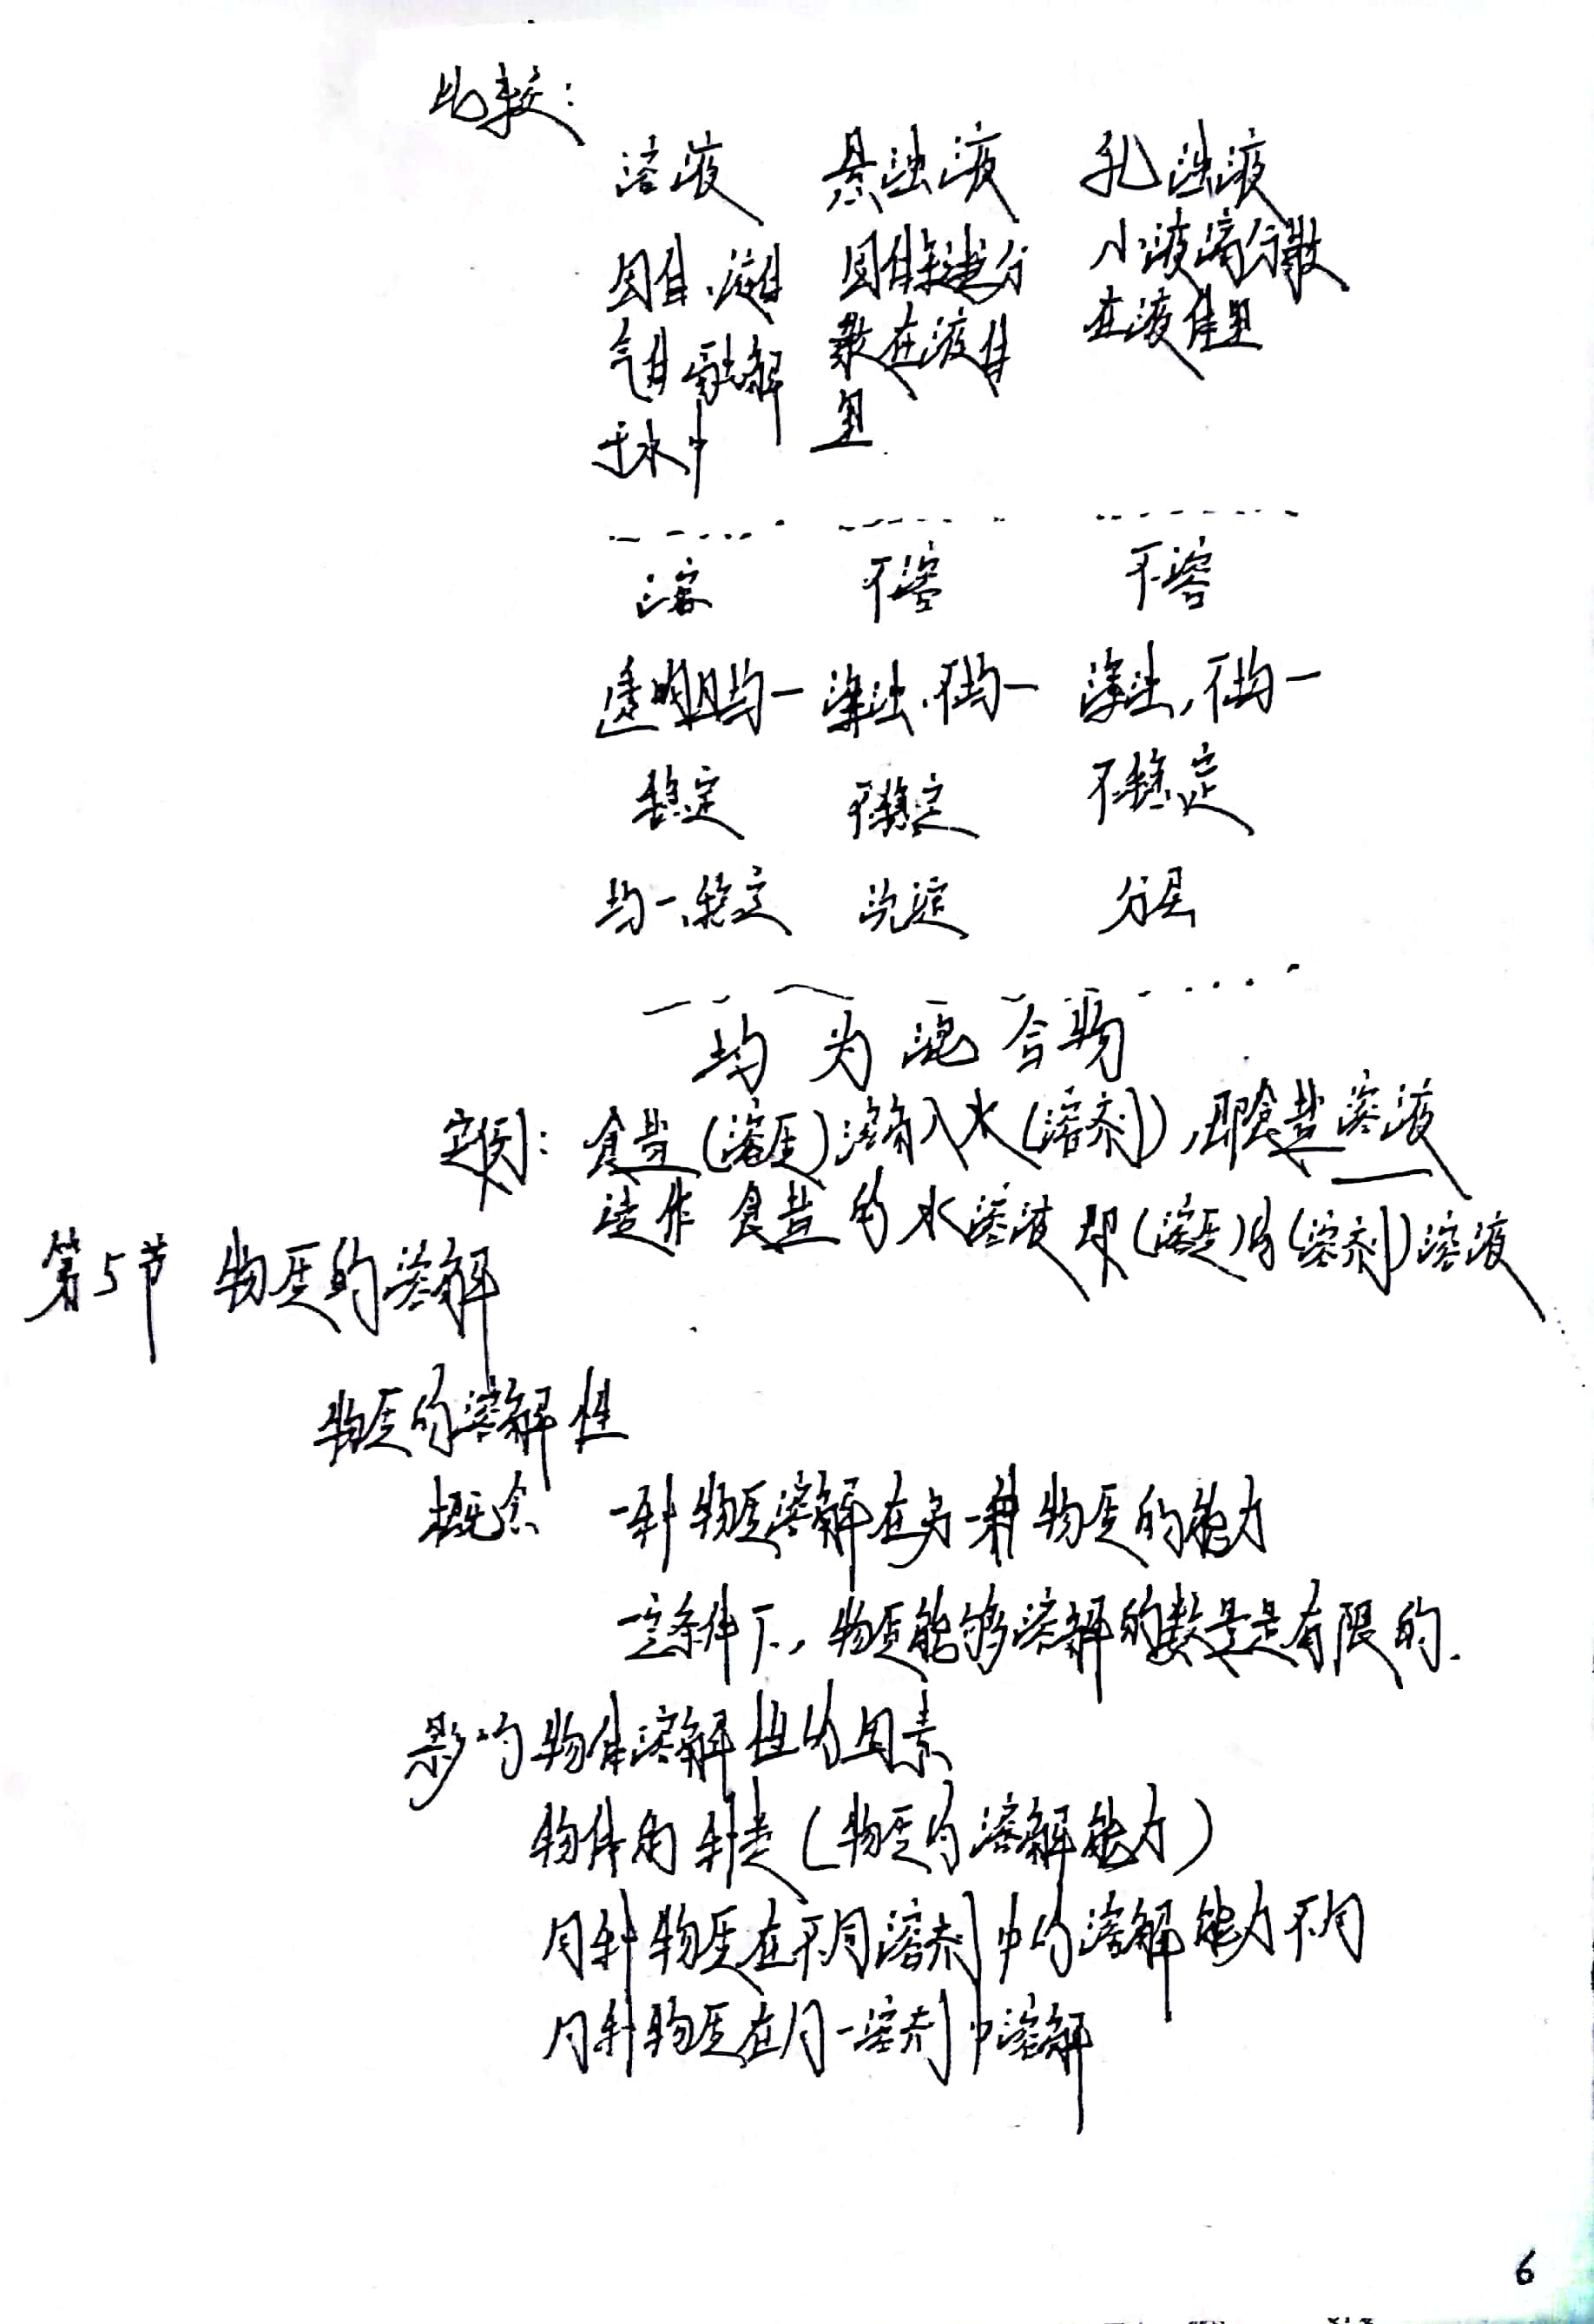 比较：
溶液 悬浊液 乳浊液
固体、液体 固体颗粒分 小液滴分散
气体融解 散在液体 在液体里
于水中 里
溶 不溶 不溶
透明且均一 浑浊、不均一 浑浊，不均一
稳定 不稳定 不稳定
均一、稳定 沉淀 分层
均为混合物
实例：食盐（溶质）溶入水（溶剂），即食盐溶液
读作 食盐的水溶液 即（溶质）的（溶剂）溶液
第5节 物质的溶解
物质的溶解性
概念 一种物质溶解在另一种物质的能力
一定条件下，物质能够溶解的数量是有限的.
影响物体溶解性的因素
物体的种类（物质的溶解能力）
同种物质在不同溶剂中的溶解能力不同
同种物质在同一溶剂中溶解
6